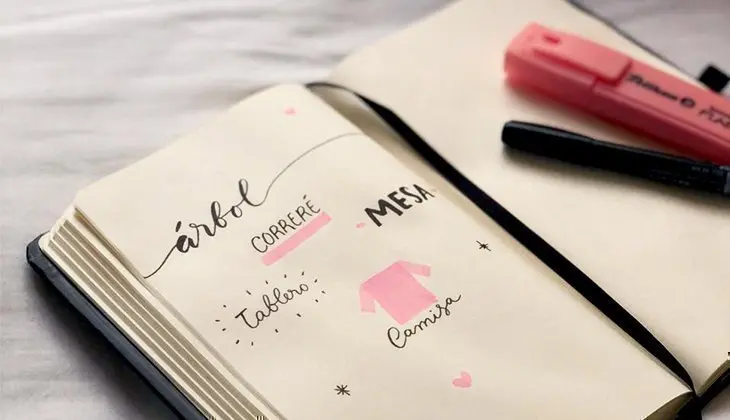 árbol
CORRERÉ
MESA
Tablero
Camisa
Pelikan